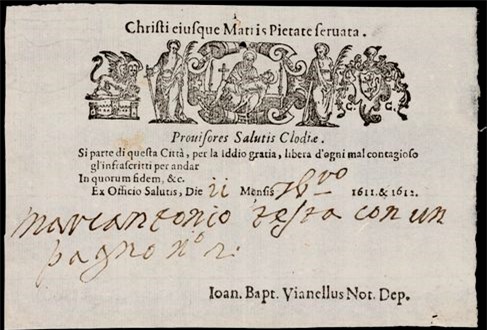 Christi eiusque Matris Pietate seruata.
C. C.
Prouisores Salutis Clodiæ.
Si parte di questa Città, per la iddio gratia, libera d'ogni mal contagioso
gl'infrascritti per andar
In quorum fidem, &c.
Ex Officio Salutis, Die 11 Mensis Xbro 1611. & 1612.
Marcantonio testa con un
pagno nº 2.
Ioan. Bapt. Vianellus Not. Dep.